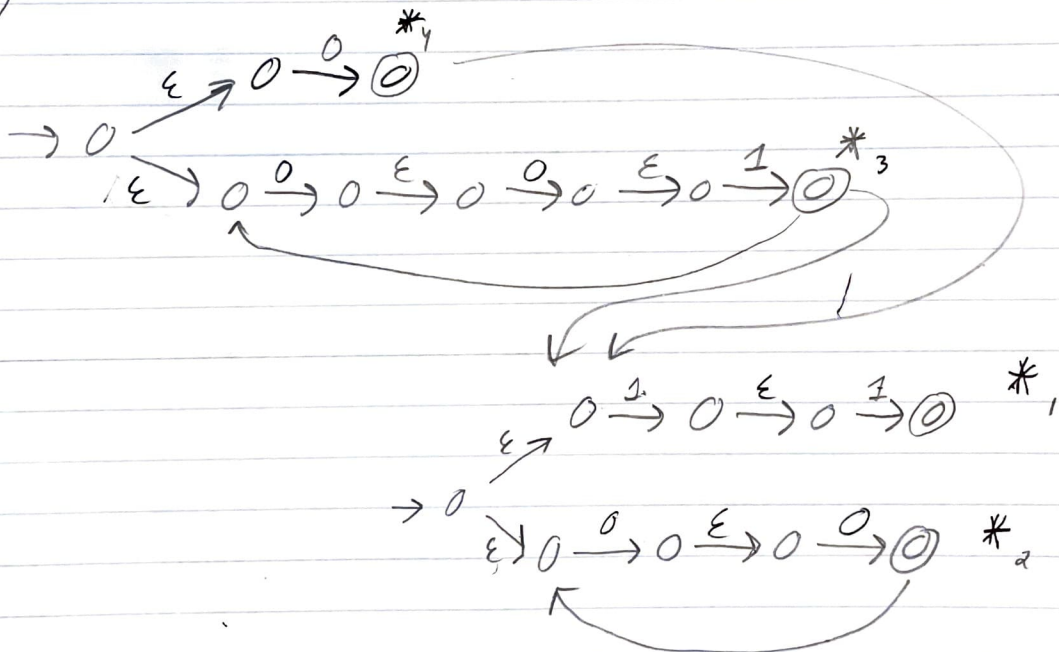 *4
ε 0
ε 0 ε 0 ε 1 *3
1
1 ε 1 *1
ε
ε 0 ε 0 *2